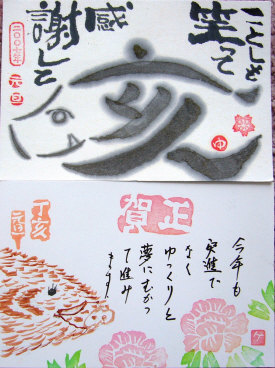 ことしも
笑って
感
謝して
亥
二〇〇七年
元旦
賀正
今年も
突進で
なく
ゆっくりと
夢にむかっ
て進み
ます
丁亥
元旦